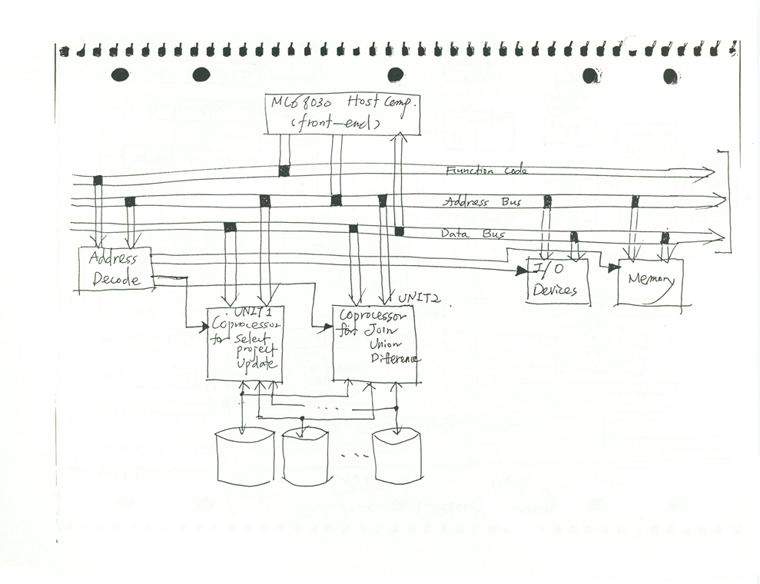 MC68030 Host Comp.
(front-end)
Function Code
Address Bus
Data Bus
Address
Decode
I/O
Devices
Memory
UNIT1
Coprocessor
for Select
project
update
UNIT2
Coprocessor
for Join
Union
Difference